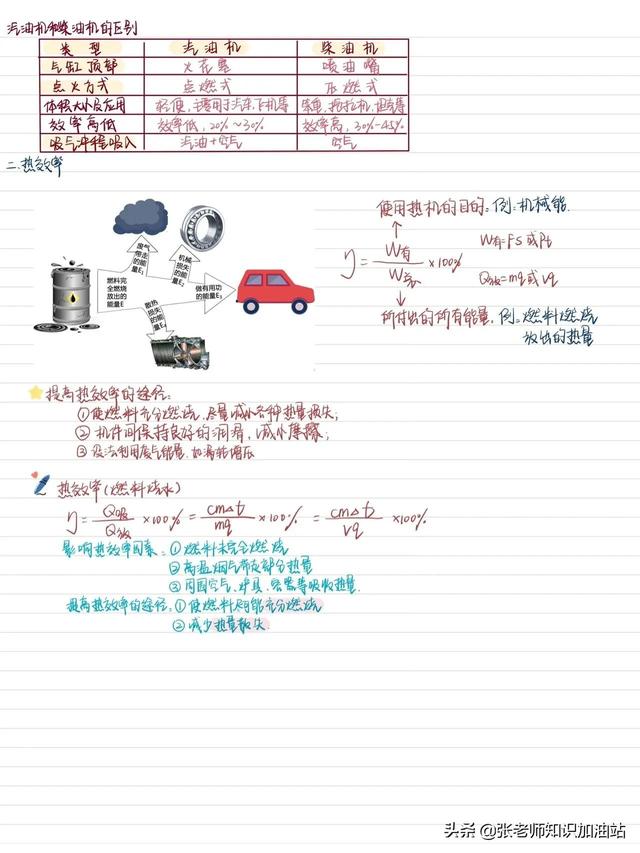 汽油机和柴油机的区别
类型 汽油机 柴油机
气缸顶部 火花塞 喷油嘴
点火方式 点燃式 压燃式
体积大小及应用 轻便,主要用于汽车、飞机等 笨重,拖拉机、坦克等
效率高低 效率低,20%~30% 效率高,30%-45%
吸气冲程吸入 汽油+空气 空气
二.热效率
废气带走的能量E₁
机械损失的能量E₂
燃料完全燃烧放出的能量E
做有用功的能量E₃
散热损失的能量E₄
使用热机的目的。例:机械能.
η=W有/W总×100%
W有=FS或Pt
Q放=mq或Vq
所付出的所有能量.例:燃料燃烧放出的热量
提高热效率的途径:
①使燃料充分燃烧,尽量减小各种热量损失;
②机件间保持良好的润滑,减小摩擦;
③设法利用废气能量,如涡轮增压
热效率(燃料烧水)
η=Q吸/Q放×100%=cm△t/mq×100%=cm△t/Vq×100%
影响热效率因素:①燃料未完全燃烧
②高温烟气带走部分热量
③周围空气、炉具、容器等吸收热量.
提高热效率的途径:①使燃料尽可能充分燃烧
②减少热量散失.
头条@张老师知识加油站